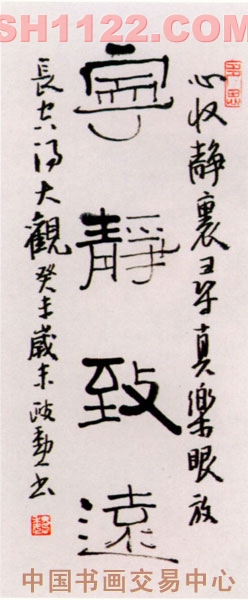 SH1122.COM
心收靜裏寻真樂眼放
寧靜致遠
長空得大觀癸未歲末书
中国书画交易中心